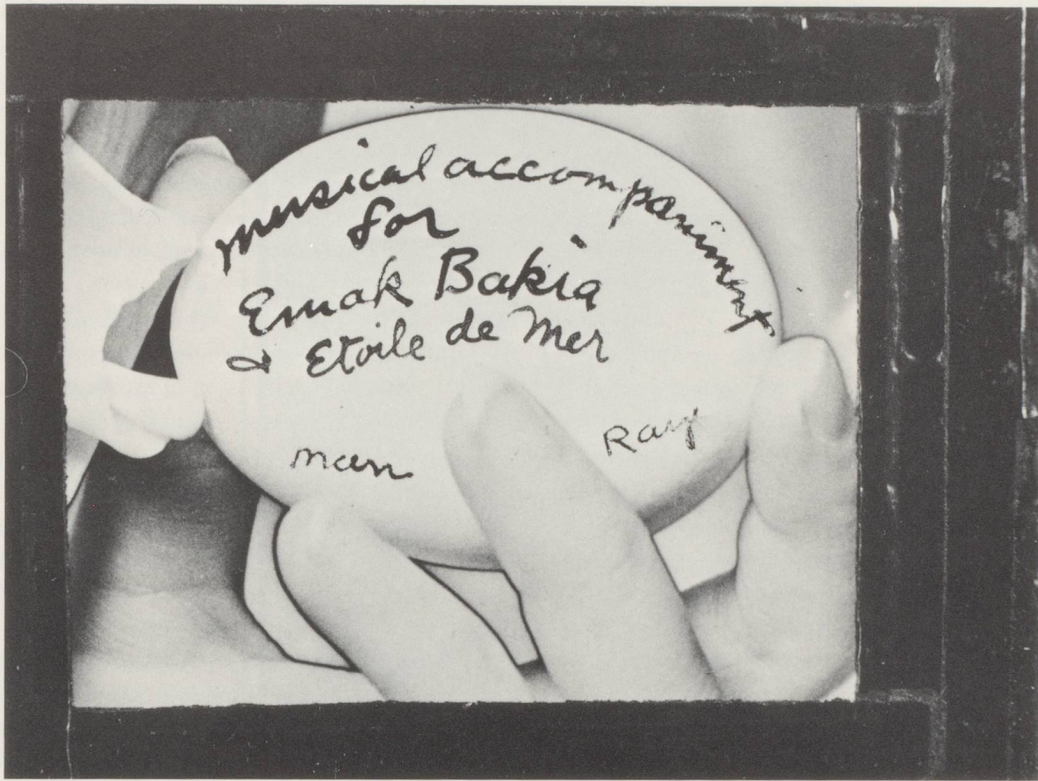 musical accompaniment
for
Emak Bakia
& Etoile de Mer
man Ray